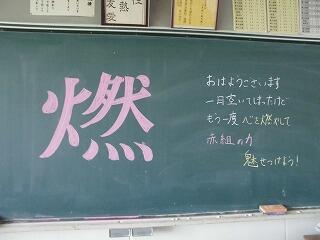 熱
友愛
燃
おはようございます
一日空いてしまったけど
もう一度 心を燃やして
赤組の力
魅せつけよう！